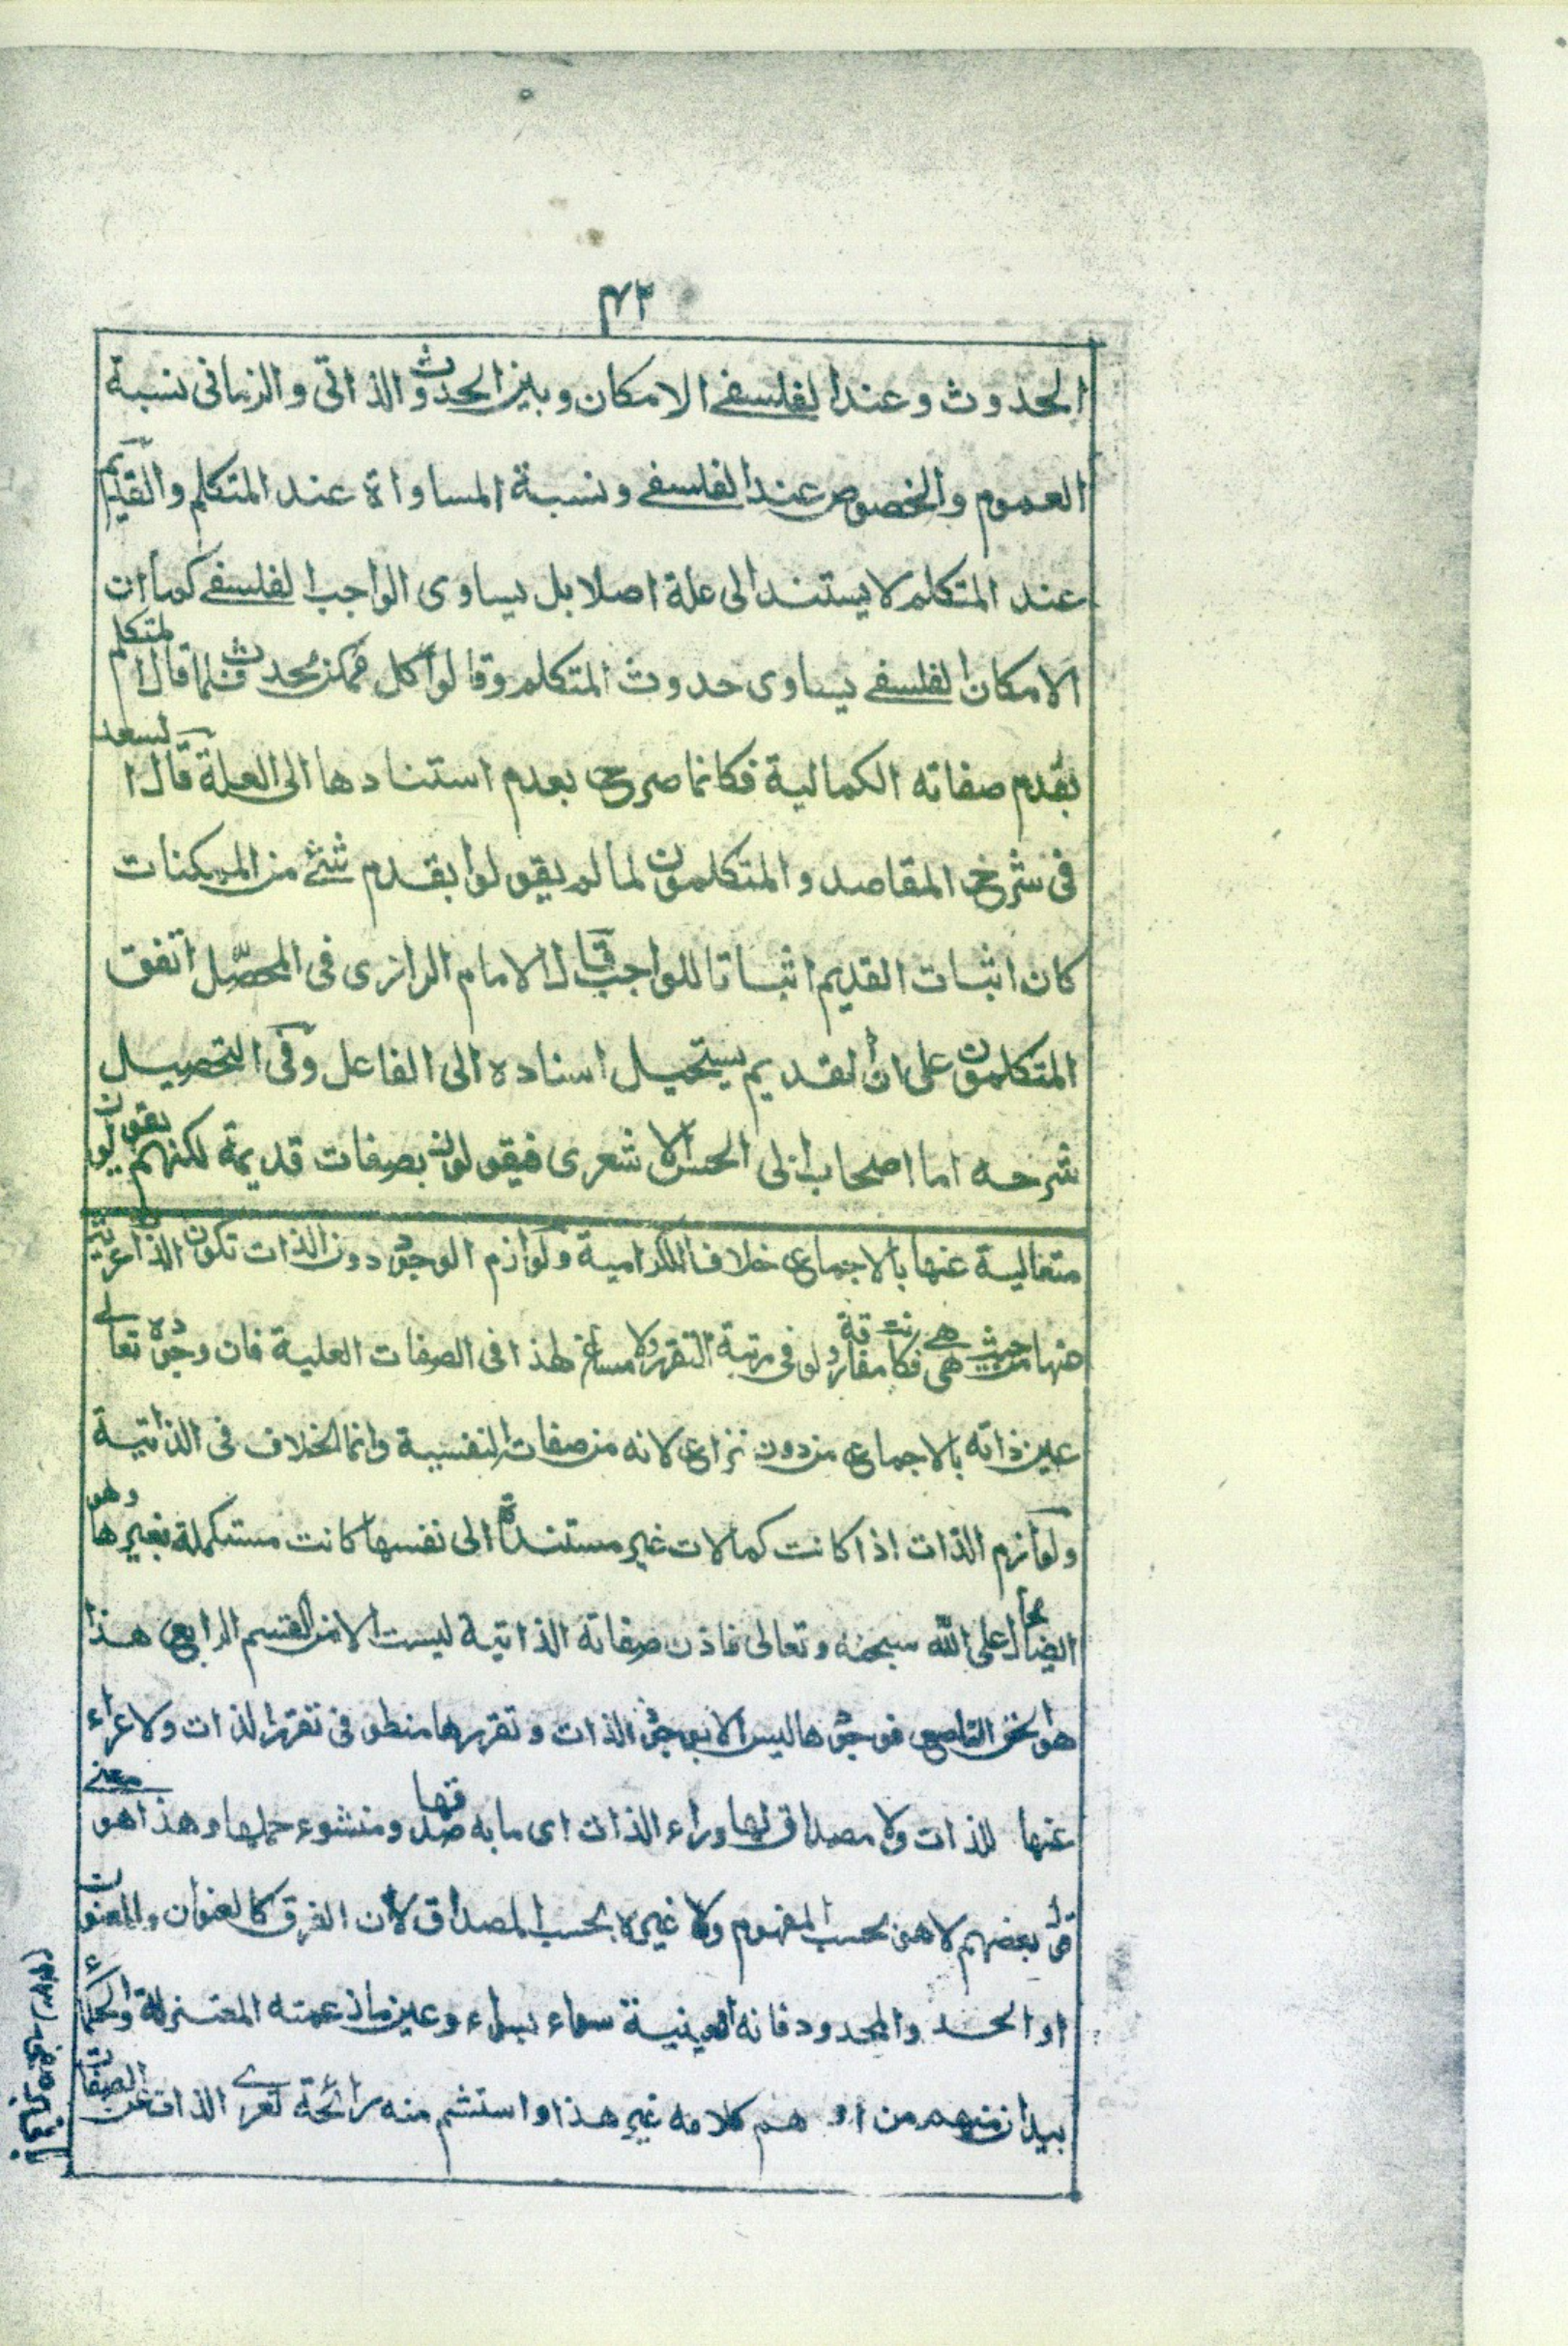 ٤٢
الحدوث وعند الفلسفے الامكان وبين الحدوث الذاتى والزمانى نسبة
العموم والخصوص عند الفلسفے ونسبة المساواة عند المتكلم والقديم
عند المتكلم لا يستند الى علة اصلا بل يساوى الواجب الفلسفے كما ان
الامكان الفلسفے يساوى حدوث المتكلم وقالوا كل ممكن محدث فلما قال المتكلم
بقدم صفاته الكمالية فكانما صرح بعدم استنادها الى العلة قال السعد
فى شرح المقاصد والمتكلمون لما لم يقولوا بقدم شئے من الممكنات
كان اثبات القديم اثباتا للواجب قال الامام الرازى فى المحصّل اتفق
المتكلمون على ان القديم يستحيل اسناده الى الفاعل وفى التحصيل
شرحه اما اصحاب ابى الحسن الاشعرى فيقولون بصفات قديمة لكنهم يقولون
متعالية عنها بالاجماع خلافا للكرامية ولوازم الوجود دون الذات تكون الذات عرية
عنها من حيث هى هے فكانت مفارقة ولو فى مرتبة التقرر ولا مساغ لهذا فى الصفات العلية فان وجوده تعالے
عين ذاته بالاجماع من دون نزاع لانه من صفات النفسية وانما الخلاف فى الذاتية
ولوازم الذات اذا كانت كمالات غير مستندة الى نفسها كانت مستكملة بغيرها وهو
ايضا محال على الله سبحنه وتعالى فاذن صفاته الذاتية ليست الا من القسم الرابع هذا
هو الحق الناصع فوجودها ليس الا بوجود الذات وتقررها منطو فى تقرر الذات ولا عراء
عنها للذات ولا مصداق لها وراء الذات اى ما به صدقها ومنشوء حملها وهذا هو معنے
قول بعضهم لا هو بحسب المفهوم ولا غيره بحسب المصداق لان الفرق كالعنوان والمعنون
او الحد والمحدود فانه العينية سواء بسواء وعين ما زعمته المعتزلة والحكماء
بيد ان منهم من اوهم كلامه غير هذا واستشم منه رائحة تعرے الذات عن الصفات